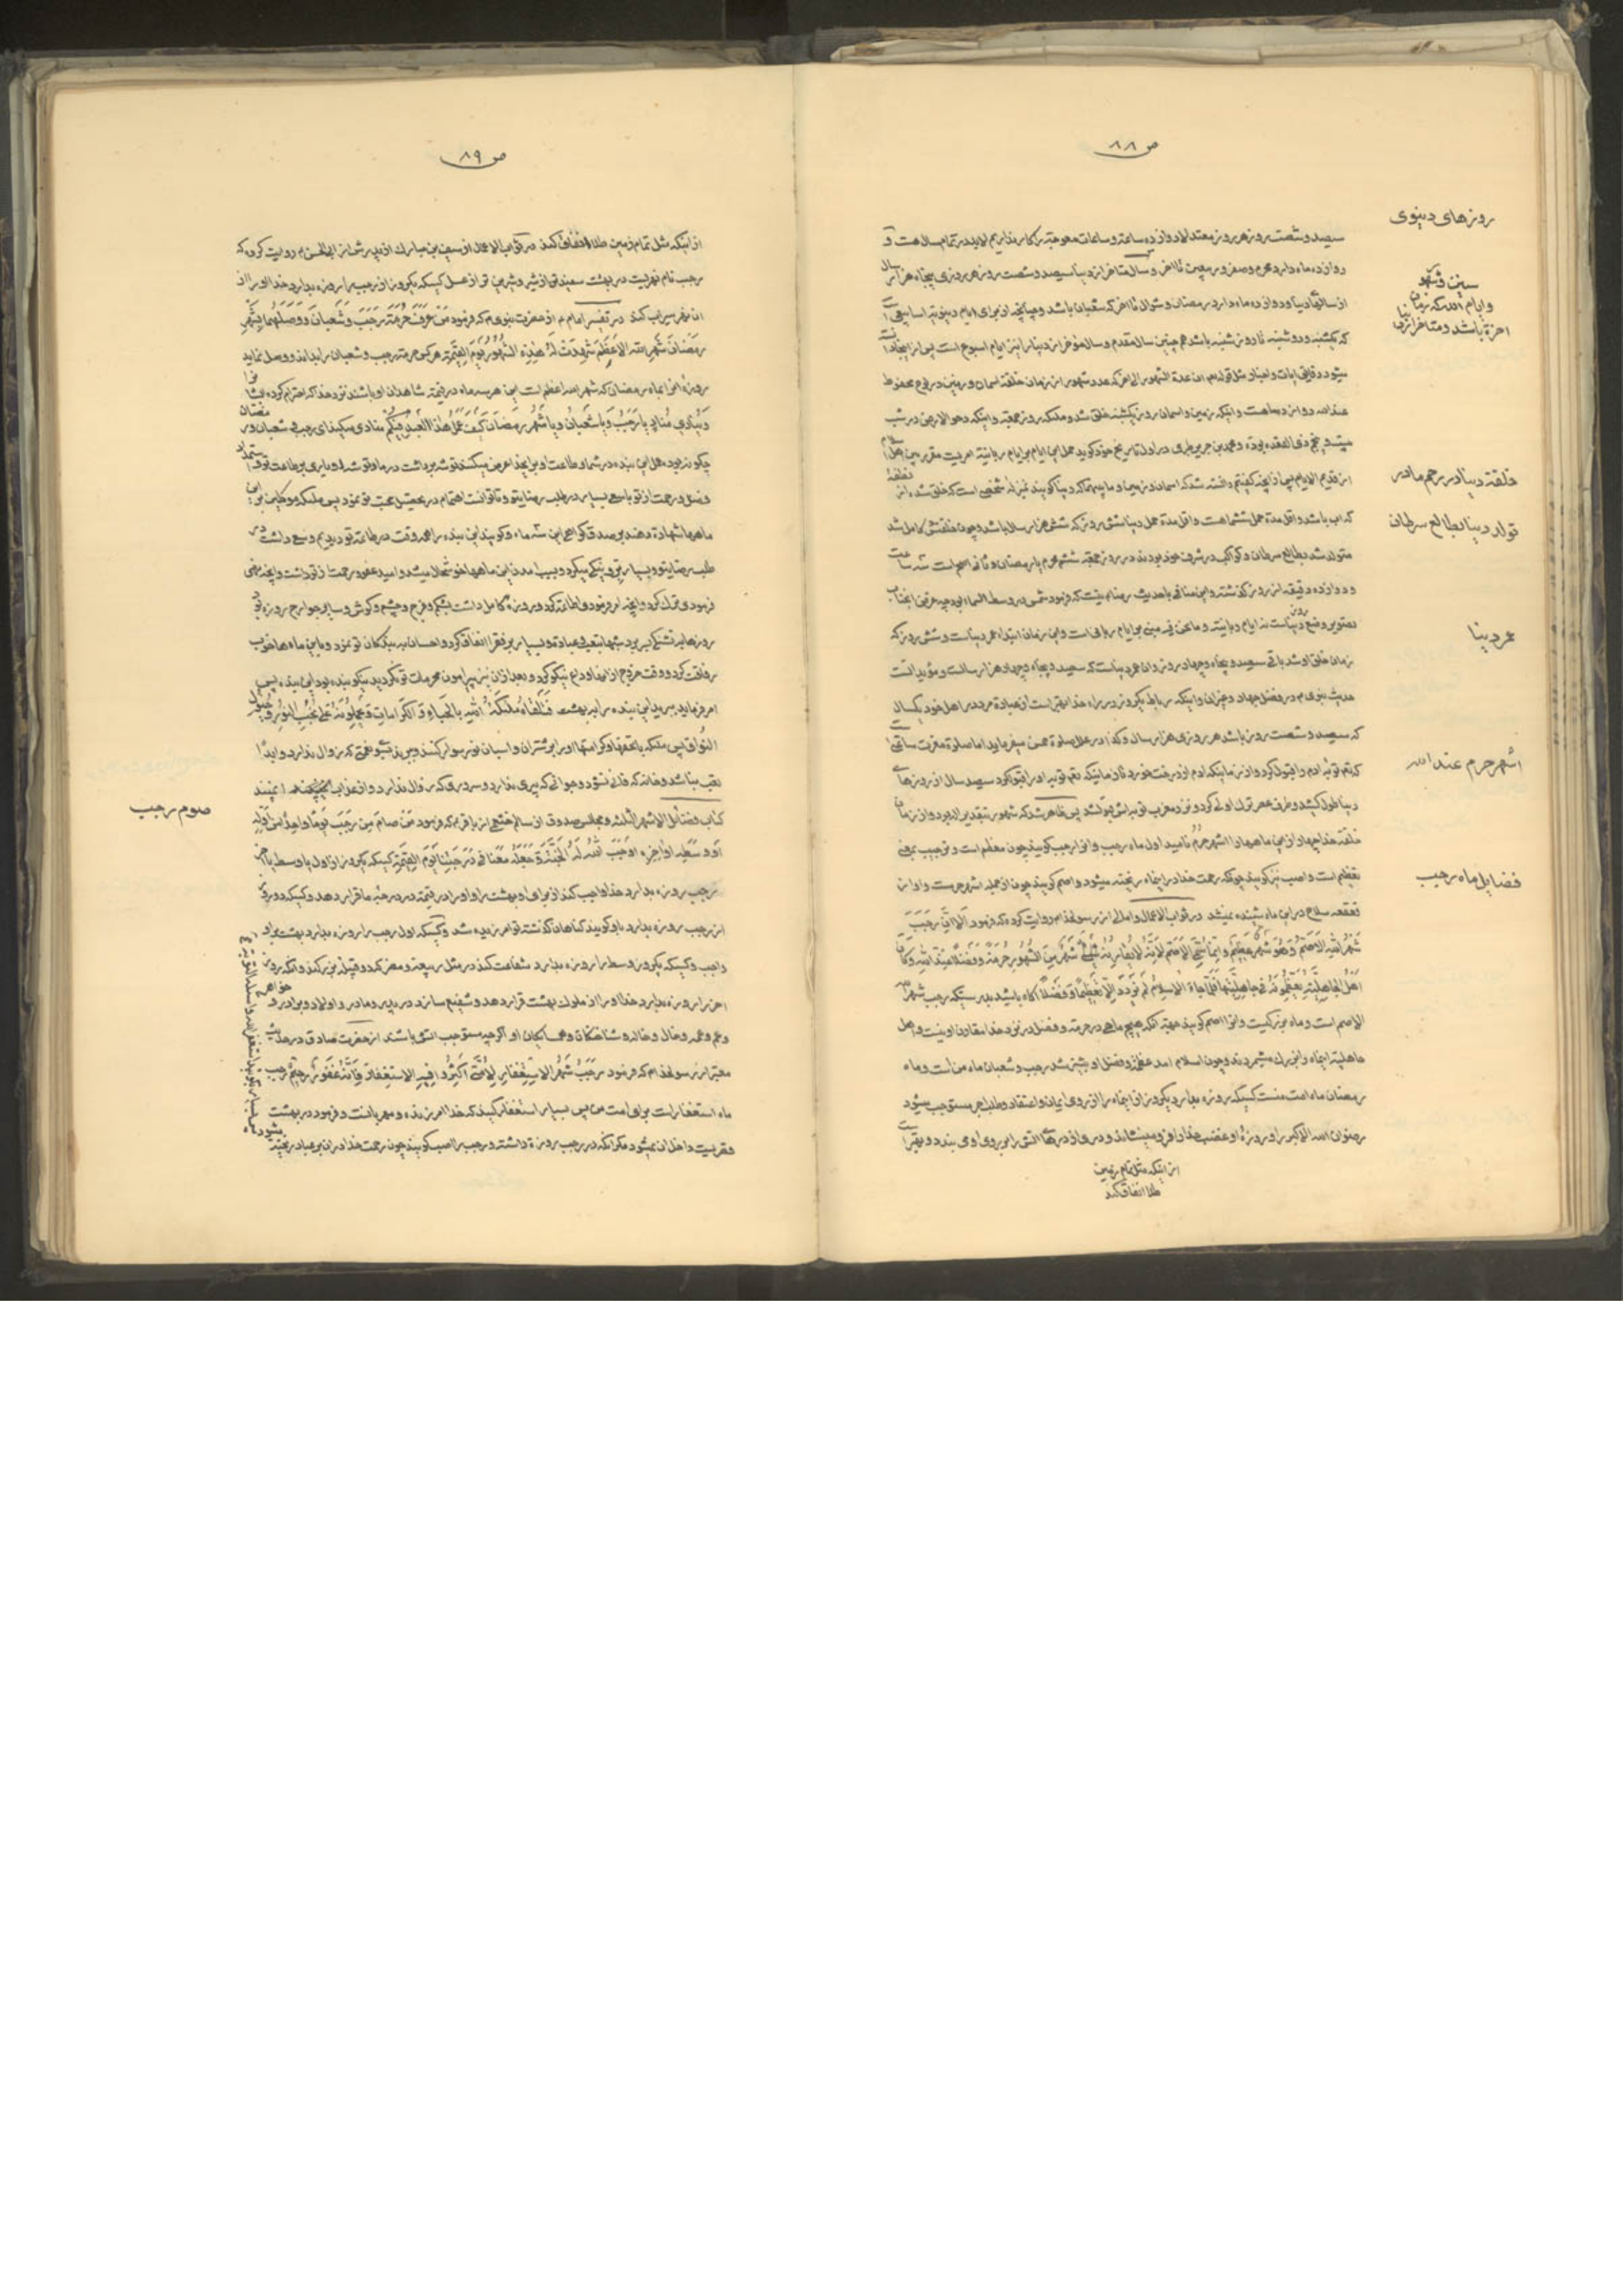 ص ۸۸
روزهای دنیوی
سیصد و شصت روز هر روز معتدلا دوازده ساعة و ساعات معوجة بکار نداریم لابد در تمام سال هست و
سنین و شهو
دوازده ماه دارد محرم و صفر و ربیعین تا اخر و سال متاخر از دنیا سیصد و شصت روز هر روزی پنجاه هزار سال
و ایام الله که زمان
از سالهای دنیا و دوازده ماه دارد رمضان و شوال تا اخر که شعبان باشد و چنانچه از برای ایام دنیویة اسابیعی
اخرة باشد و متاخر از دنیا
که یکشنبه و دوشنبه تا روز شنبه باشد همچنین سال مقدم و سال مؤخر از دنیا را نیز ایام اسبوع است پس از اینجا
میشود دقایق ایات و اخبار مثل قوله ان عدة الشهور الی اخر که عدد شهور از زمان خلقة اسمان و زمین در لوح محفوظ
عند الله دوازده ماهست و اینکه زمین و اسمان روز یکشنبه خلق شد و ملئکه روز جمعة و اینکه دحو الارض در شب
بیست و پنجم ذی القعده بوده و محمد بن جریر طبری در اول تاریخ خود کوید حمل این ایام بر ایام ربانیة امریست مقرر بین اهل
خلقة دنیا در رحم مادر
از قدیم الایام پس از انچه کفتیم دانسته شد که اسمان و زمین و ما بینهما که دنیا کویند بمنزلهٔ شخصی است که خلق شده از نطفهٔ
تولد دنیا بطالع سرطان
که اب باشد و اقل مدة حمل ششماهست و اقل مدة حمل دنیا شش روز که شش هزار سال باشد و چون خلقتش کامل شد
متولد شد بطالع سرطان و کواکب در شرف خود بودند در روز جمعه ششم محرم یا رمضان و ثانی اصح است سه ساعت
و دوازده دقیقه از روز کذشته و این منافی با حدیث رضا نیست که فرمود شمس در وسط السماء بود چه غرض انجناب
عمر دنیا
تصویر وضع دنیاست نه ایام دنیائیة و ما نحن فیه مبنی بر ایام ربانی است و این زمان ابتداء عمر دنیاست و شش روز که
زمان خلق او شد باقی سیصد و پنجاه و چهار روز و ان عمر دنیاست که سیصد و پنجاه و چهار هزار سالست و مؤید انست
حدیث نبوی در فضل جهاد و غزان و اینکه رباط یکروز در راه خدا بهتر است از عبادة مرد در اهل خود یکسال
اشهر حرم عند الله
که سیصد و شصت روز باشد هر روزی هزار سال
کفتم توبه ادم را قبول کرد و از زمانیکه ادم از درخت خورد تا زمانیکه تمام توبه او را قبول کرد سیصد سال از روزهای
دنیا طول کشید
خلقة خدا چهار از این ماهها را اشهر حرم نامید اول ماه رجب و انرا رجب کویند چون معظم است و ترجیب بمعنی
فضایل ماه رجب
تعظیم است و اصب نیز کویند چونکه رحمت خدا در اینماه ریخته میشود و اصم کویند چون از جمله اشهر حرمست و اواز
قعقعه سلاح در این ماه شنیده نمیشد در ثواب الاعمال و امالی از رسولخدا روایت کرده که فرمود اَلا اِنَّ رَجَبَ
شَهْرُ اللهِ الاَصَمُّ وَهُوَ شَهْرٌ عَظِيمٌ وَاِنَّما سُمِّيَ الاَصَمَّ لاَنَّهُ لايُقارِنُهُ شَهْرٌ مِنَ الشُّهُورِ حُرْمَةً وَفَضْلاً عِنْدَ اللهِ وَكانَ
اَهْلُ الجاهِلِيَّةِ يُعَظِّمُونَهُ فِي جاهِلِيَّتِها فَلَمّا جاءَ الاِسْلامُ لَمْ يَزْدَدْ اِلّا تَعْظِيماً وَفَضْلاً اکاه باشید بدرستیکه رجب شهر الله
الاصم است و ماه بزرکیست و انرا اصم کویند بجهة انکه هیچ ماهی در حرمة و فضل در نزد خدا مقارن او نیست و اهل
جاهلیة اینماه را بزرک میشمردند و چون اسلام امد عظمة و فضل او بیشتر شد رجب و شعبان ماه من است و ماه
رمضان ماه امت منست کسیکه روزه بدارد یکروز از اینماه را از روی ایمان و اعتقاد و طلب اجر مستوجب میشود
رضوان الله الاکبر را و روزهٔ او غضب خدا را فرو مینشاند و دری از درهای اتش را بر روی او می بندد و بهتر است
از اینکه مثل تمام زمین
طلا انفاق کند
ص ۸۹
از اینکه مثل تمام زمین طلا انفاق کند در ثواب الاعمال از سیف بن مبارک از پدرش از ابی الحسن روایت کرده که
رجب نام نهریست در بهشت سفیدتر از شیر و شیرین تر از عسل کسیکه یکروز از رجب را روزه بدارد خدا او را از
ان نهر سیراب کند در تفسیر امام از حضرت نبوی که فرمود مَنْ عَرَفَ حُرْمَةَ رَجَبَ وَشَعْبانَ وَوَصَلَهُما بِشَهْرِ
رَمَضانَ شَهْرِ اللهِ الاَعْظَمِ شَهِدَتْ لَهُ هٰذِهِ الشُّهُورُ يَوْمَ القِيٰمَةِ هر کس حرمة رجب و شعبان را بداند و وصل نماید
روزهٔ انرا بماه رمضان که شهر الله اعظم است این هر سه ماه در قیمة شاهدان او باشند نزد خدا که احترام کرده انها را
وَيُنادِي مُنادٍ يا رَجَبُ وَيا شَعْبانُ وَيا شَهْرَ رَمَضانَ كَيْفَ عَمَلُ هٰذَا العَبْدِ فِيكُمْ منادی میکند ای رجب ای شعبان و رمضان
چکونه بوده عمل این بنده در شما و طاعت او
فضل و رحمت از تو باجهد بسیار در طلب رضای تو و تا توانست اهتمام در تحصیل محبت تو نمود پس ملئکه موکلین بر این
ماهها شهادة دهند بر صدق کواهی این سه ماه و کویند این بنده را همه وقت در طاعة تو دیدیم و سعی داشت در
طلب رضای تو
فرمودی ترک کرد و انچه امر فرمودی اطاعة کرد و روزهٔ کامل داشت بشکم و فرج و چشم و کوش و سایر جوارح
روزها به تشنکی بسر برد شبها بتعب عبادة و بسیار بر فقرا انفاق کرد و احسان به بندکان تو نمود و با این ماهها خوب
رفاقت کرد و وقت خروج از انها وداع نیکو کرد و بعد از ان نیز پیرامون محرمات تو نکردید نیکو بنده بود این بنده پس
امر فرماید ببرید این بنده را به بهشت فَتَلَقّاهُ مَلٰئِكَةُ اللهِ بِالحِباءِ وَالكَراماتِ وَيَحْمِلُونَهُ عَلىٰ نُجُبِ النُّورِ وَخُيُولِ
النُّوْاقِ پس ملئکه با تحفها و کرامتها او را بر شتران و اسبان نور سوار کنند و ببرند بسوی نعمتی که زوال ندارد و ابدا
تعب نباشد و خانه که فانی نشود و جوانی که پیری ندارد و سروری که زوال ندارد
صوم رجب
کتاب فضائل الاشهر الثلثه و مجالس صدوق از سالم خثعمی از باقر که فرمود مَنْ صامَ مِنْ رَجَبَ يَوْماً واحِداً مِنْ اَوَّلِهِ
اَوْ وَسَطِهِ اَوْ اٰخِرِهِ اَوْجَبَ اللهُ لَهُ الجَنَّةَ وَجَعَلَهُ مَعَنا فِي دَرَجَتِنا يَوْمَ القِيٰمَةِ کسیکه یکروز از اول یا وسط یا اخر
رجب روزه بدارد خدا واجب کند از برای او بهشت را و او را در قیمة در درجهٔ ما قرار دهد و کسیکه دو روز
از رجب روزه بدارد باو کویند کناهان کذشتهٔ تو امرزیده شد و کسیکه اول رجب را روزه بدارد بهشت بر او
واجب و کسیکه یکروز وسط را روزه بدارد شفاعت کند در مثل ربیعه و مضر که دو قبیلهٔ بزرکند و انکه روز
اخر را روزه بدارد خدا او را از ملوک بهشت قرار دهد و شفیع سازد در پدر و مادر و اولاد و برادر و خواهر
و عم و عمه و خال و خاله و شناختکان و همسایکان او اکر چه مستوجب اتش باشند از حضرت صادق در حدیث
معتبر از رسولخدا که فرمود رَجَبٌ شَهْرُ الاِسْتِغْفارِ لِاُمَّتِي اَكْثِرُوا فِيهِ الاِسْتِغْفارَ فَاِنَّهُ غَفُورٌ رَحِيمٌ رجب
ماه استغفار است برای امت من پس بسیار استغفار کنید که خدا امرزنده و مهربانست و فرمود در بهشت
قصریست داخل ان نمیشود مکر انکه در رجب روزه داشته و رجب را اصب کویند چون رحمت خدا در ان بر عباد ریخته میشود